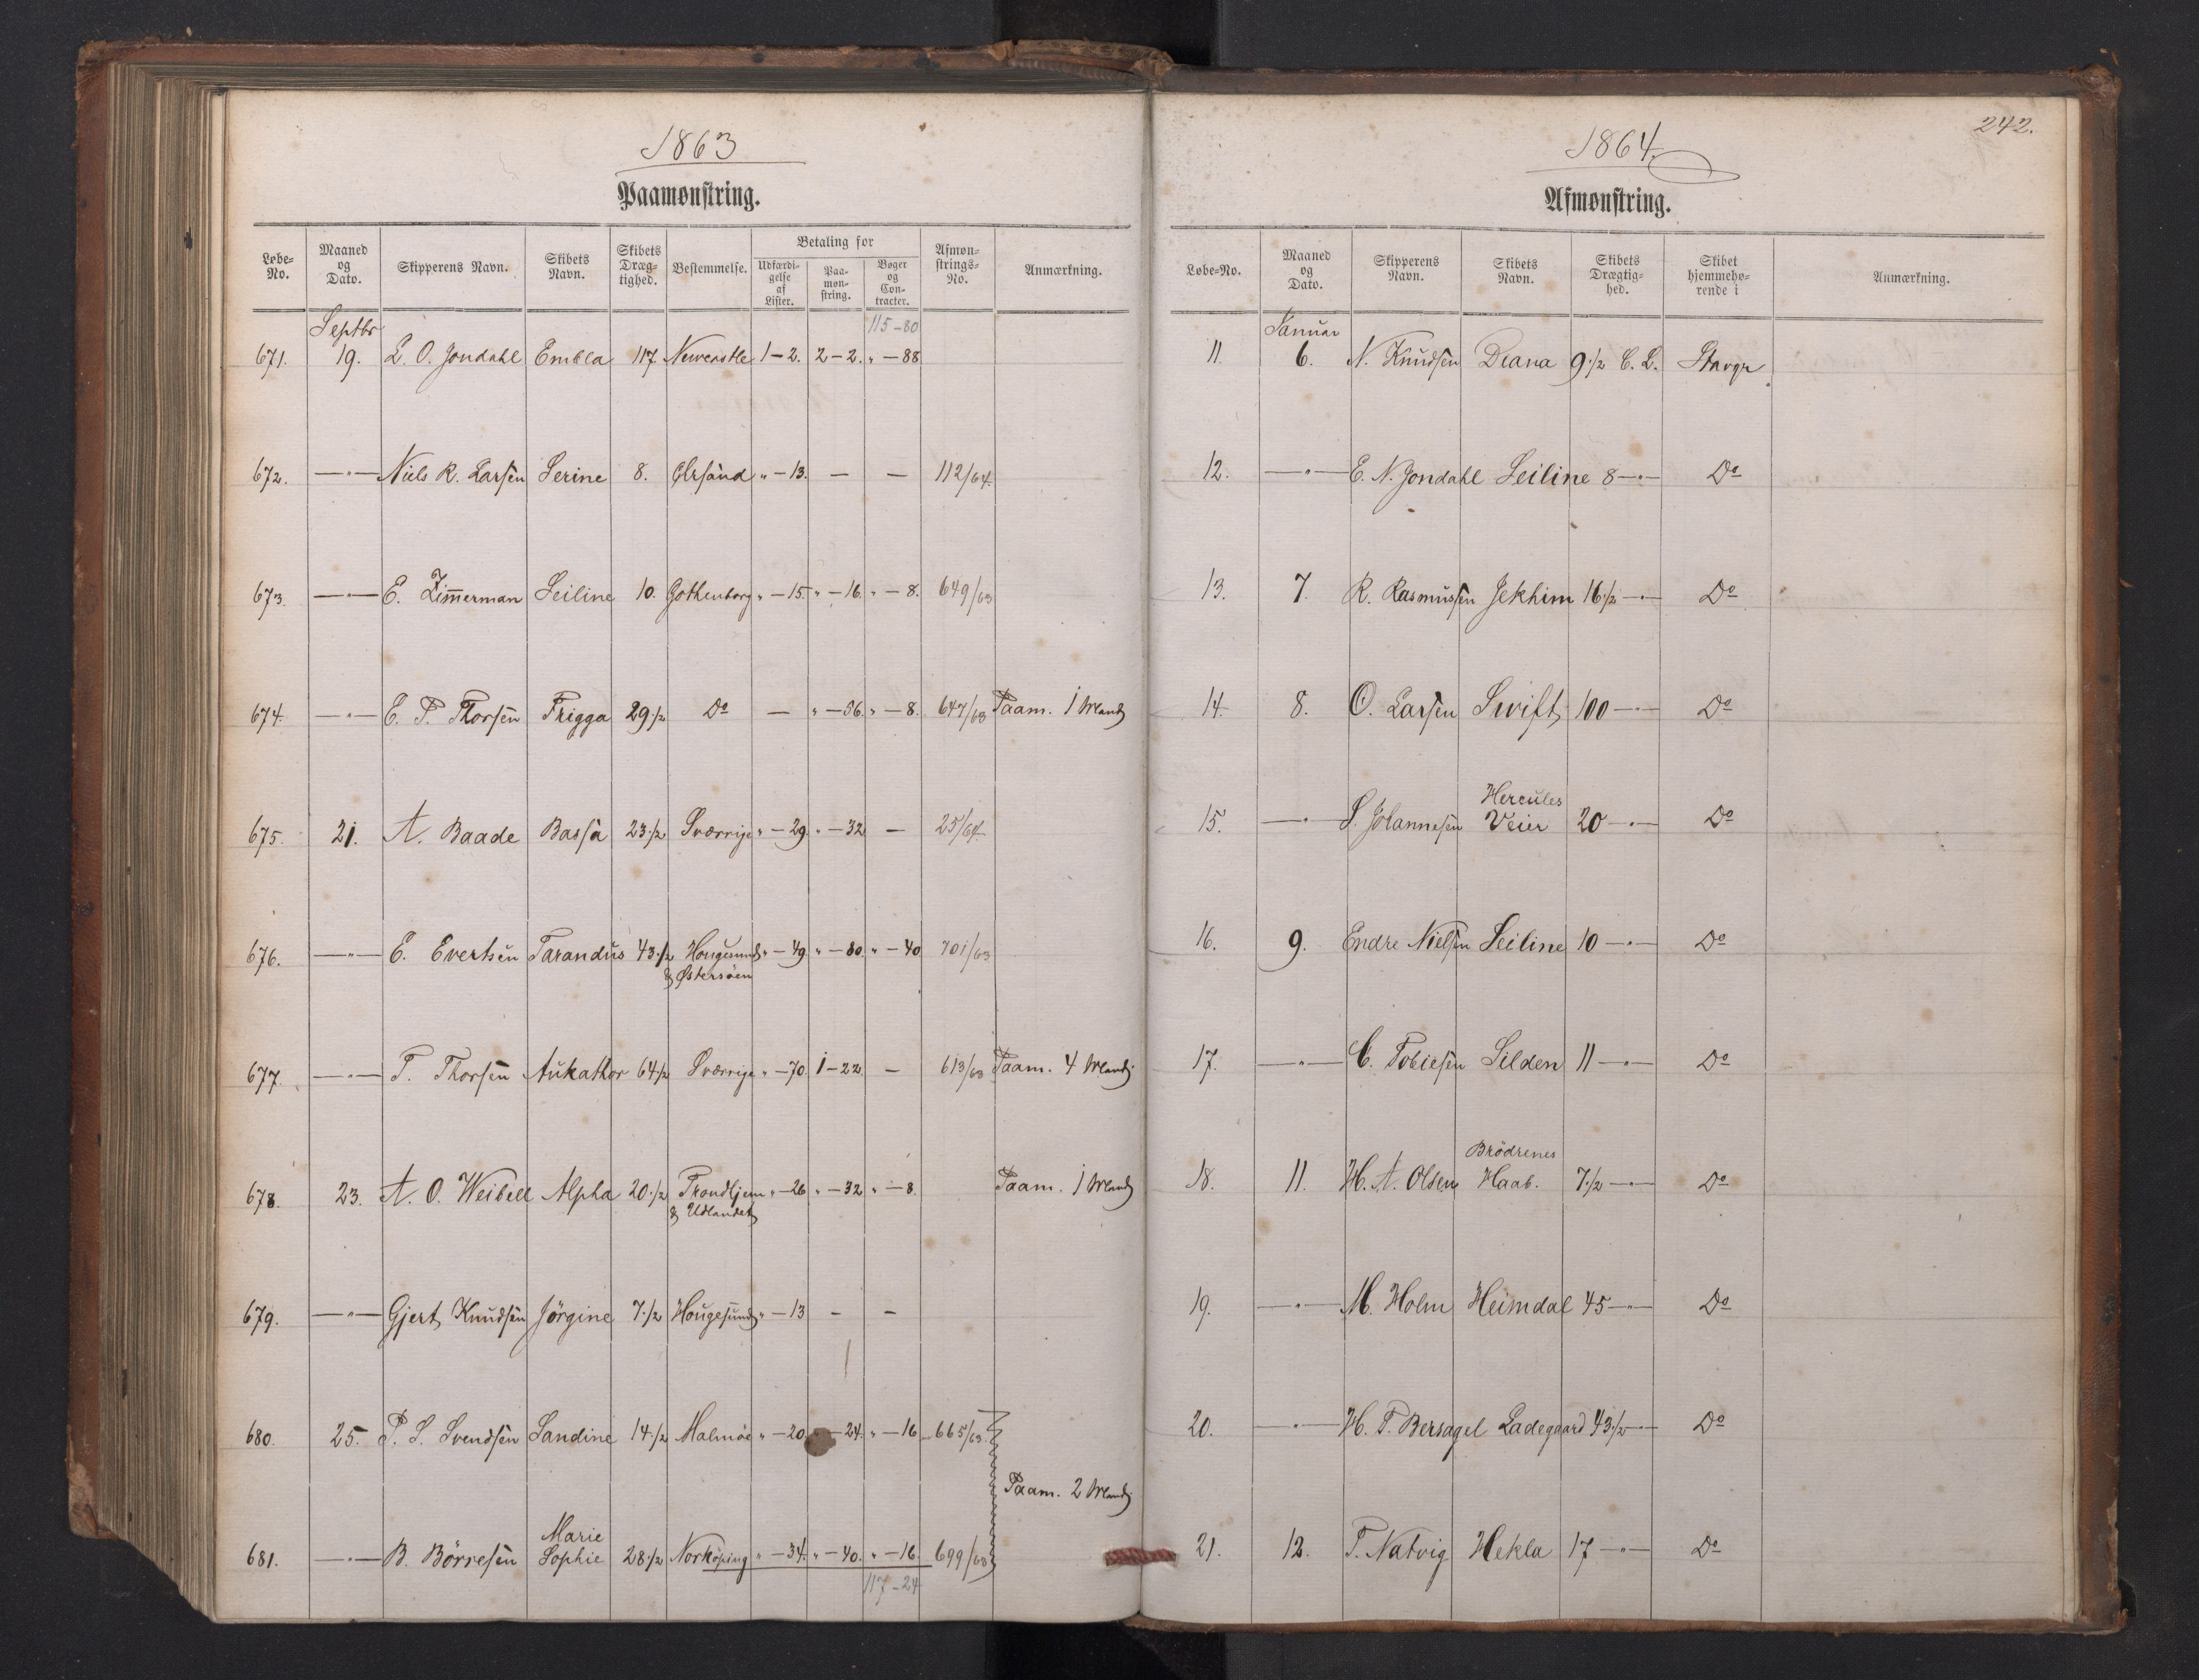 1863
Paamønstring.
Løbe-No. Maaned og Dato. Skipperens Navn. Skibets Navn. Skibets Drægtighed. Bestemmelse. Betaling for Udfærdigelse af Lister. Paamønstring. Bøger og Contracter. Afmønstrings-No. Anmærkning.
115-80
Septbr
671. 19. L. O. Jondahl Embla 117 Newcastle 1-2. 2-2. " -88
672. —"— Niels R. Larsen Serine 8. Chrsand " -13. — — 112/64.
673. —"— E. Zimmerman Seiline 10. Gothenborg " -15. " -16. " -8. 649/63
674. —"— E. T. Thorsen Frigga 29 1/2 Do — " -36. " -8. 647/63 Paam. 1 Mand
675. 21. A. Baade Bassa 23 1/2 Sværrige " -29. " -32 — 25/64
676. —"— E. Evertsen Tarandus 43 1/2 Hougesund " -49. " -80. " -40 701/63
& Østersöen
677. —"— T. Thorsen Aukathor 64 1/2 Sværrige " -70. 1-22. — 613/63 Paam. 4 Mand.
678. 23. A. O. Weibell Alpha 20 1/2 Trondhjem " -26 " -32 " -8. Paam. 1 Mand
& Udlandet
679. —"— Gjert Knudsen Jörgine 7 1/2 Hougesund " -13 - -
680. 25. P. S. Svendsen Sandine 14 1/2 Malmöe " -20 " -24. " -16 665/63.
Paam. 2 Mand
Marie
681. —"— B. Börresen Sophie 28 1/2 Norköping " -34. " -40. " -16. 699/63
117-24
242.
1864.
Afmønstring.
Løbe-No. Maaned og Dato. Skipperens Navn. Skibets Navn. Skibets Drægtighed. Skibet hjemmehørende i Anmærkning.
Januar
11. 6. N. Knudsen Diana 9 1/2 C. L. Stavgr
12. —"— E. N. Jondahl Seiline 8 —"— Do
13. 7. R. Rasmussen Jekhim 16 1/2 —"— Do
14. 8. O. Larsen Swift 100 —"— Do
Hercules
15. —"— S. Johannesen Veier 20 —"— Do
16. 9. Endre Nielsen Seiline 10 —"— Do
17. —"— C. Tobiesen Silden 11 —"— Do
Brödrenes
18. 11. H. A. Olsen Haab. 7 1/2 —"— Do
19. —"— M. Holm Heimdal 45 —"— Do
20. —"— H. T. Bersagel Ladegaard 43 1/2 —"— Do
21. 12. T. Natvig Hekla 17 —"— Do